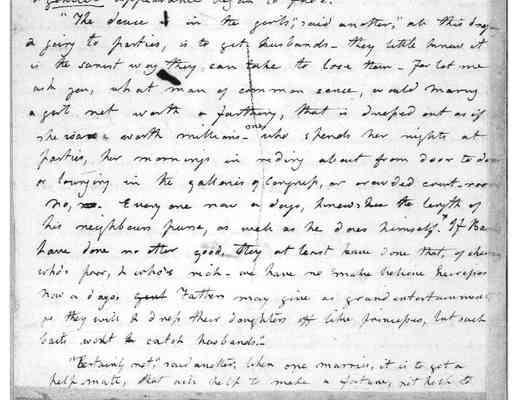 appearance began to fade.
"The deuce is in the girls", said another, "all this dress-
& going to parties, is to get husbands - they little know it
is the surest way they can take to lose them - For let me
ask you, what man of common sence, would marry
a girl not worth a farthing, that is dressed out as if
she was worth millions - one who spends her nights at
parties, her mornings in riding about from door to door
or lounging in the galleries of Congress, or crowded court-room
No, no. Every one now a days, knows the length of
his neighbours purse, as well as he does himself." If Banks
have done no other good, they at least have done that, of shewing
who's poor, & who's rich - we have no make believe heiresses
now a days, Fathers may give as grand entertainments
as they will & dress their daughters off like princesses, but such
baits wont catch husbands."
"Certainly not", said another, when one marries, it is to get a
help mate, that will help to make a fortune, not help to